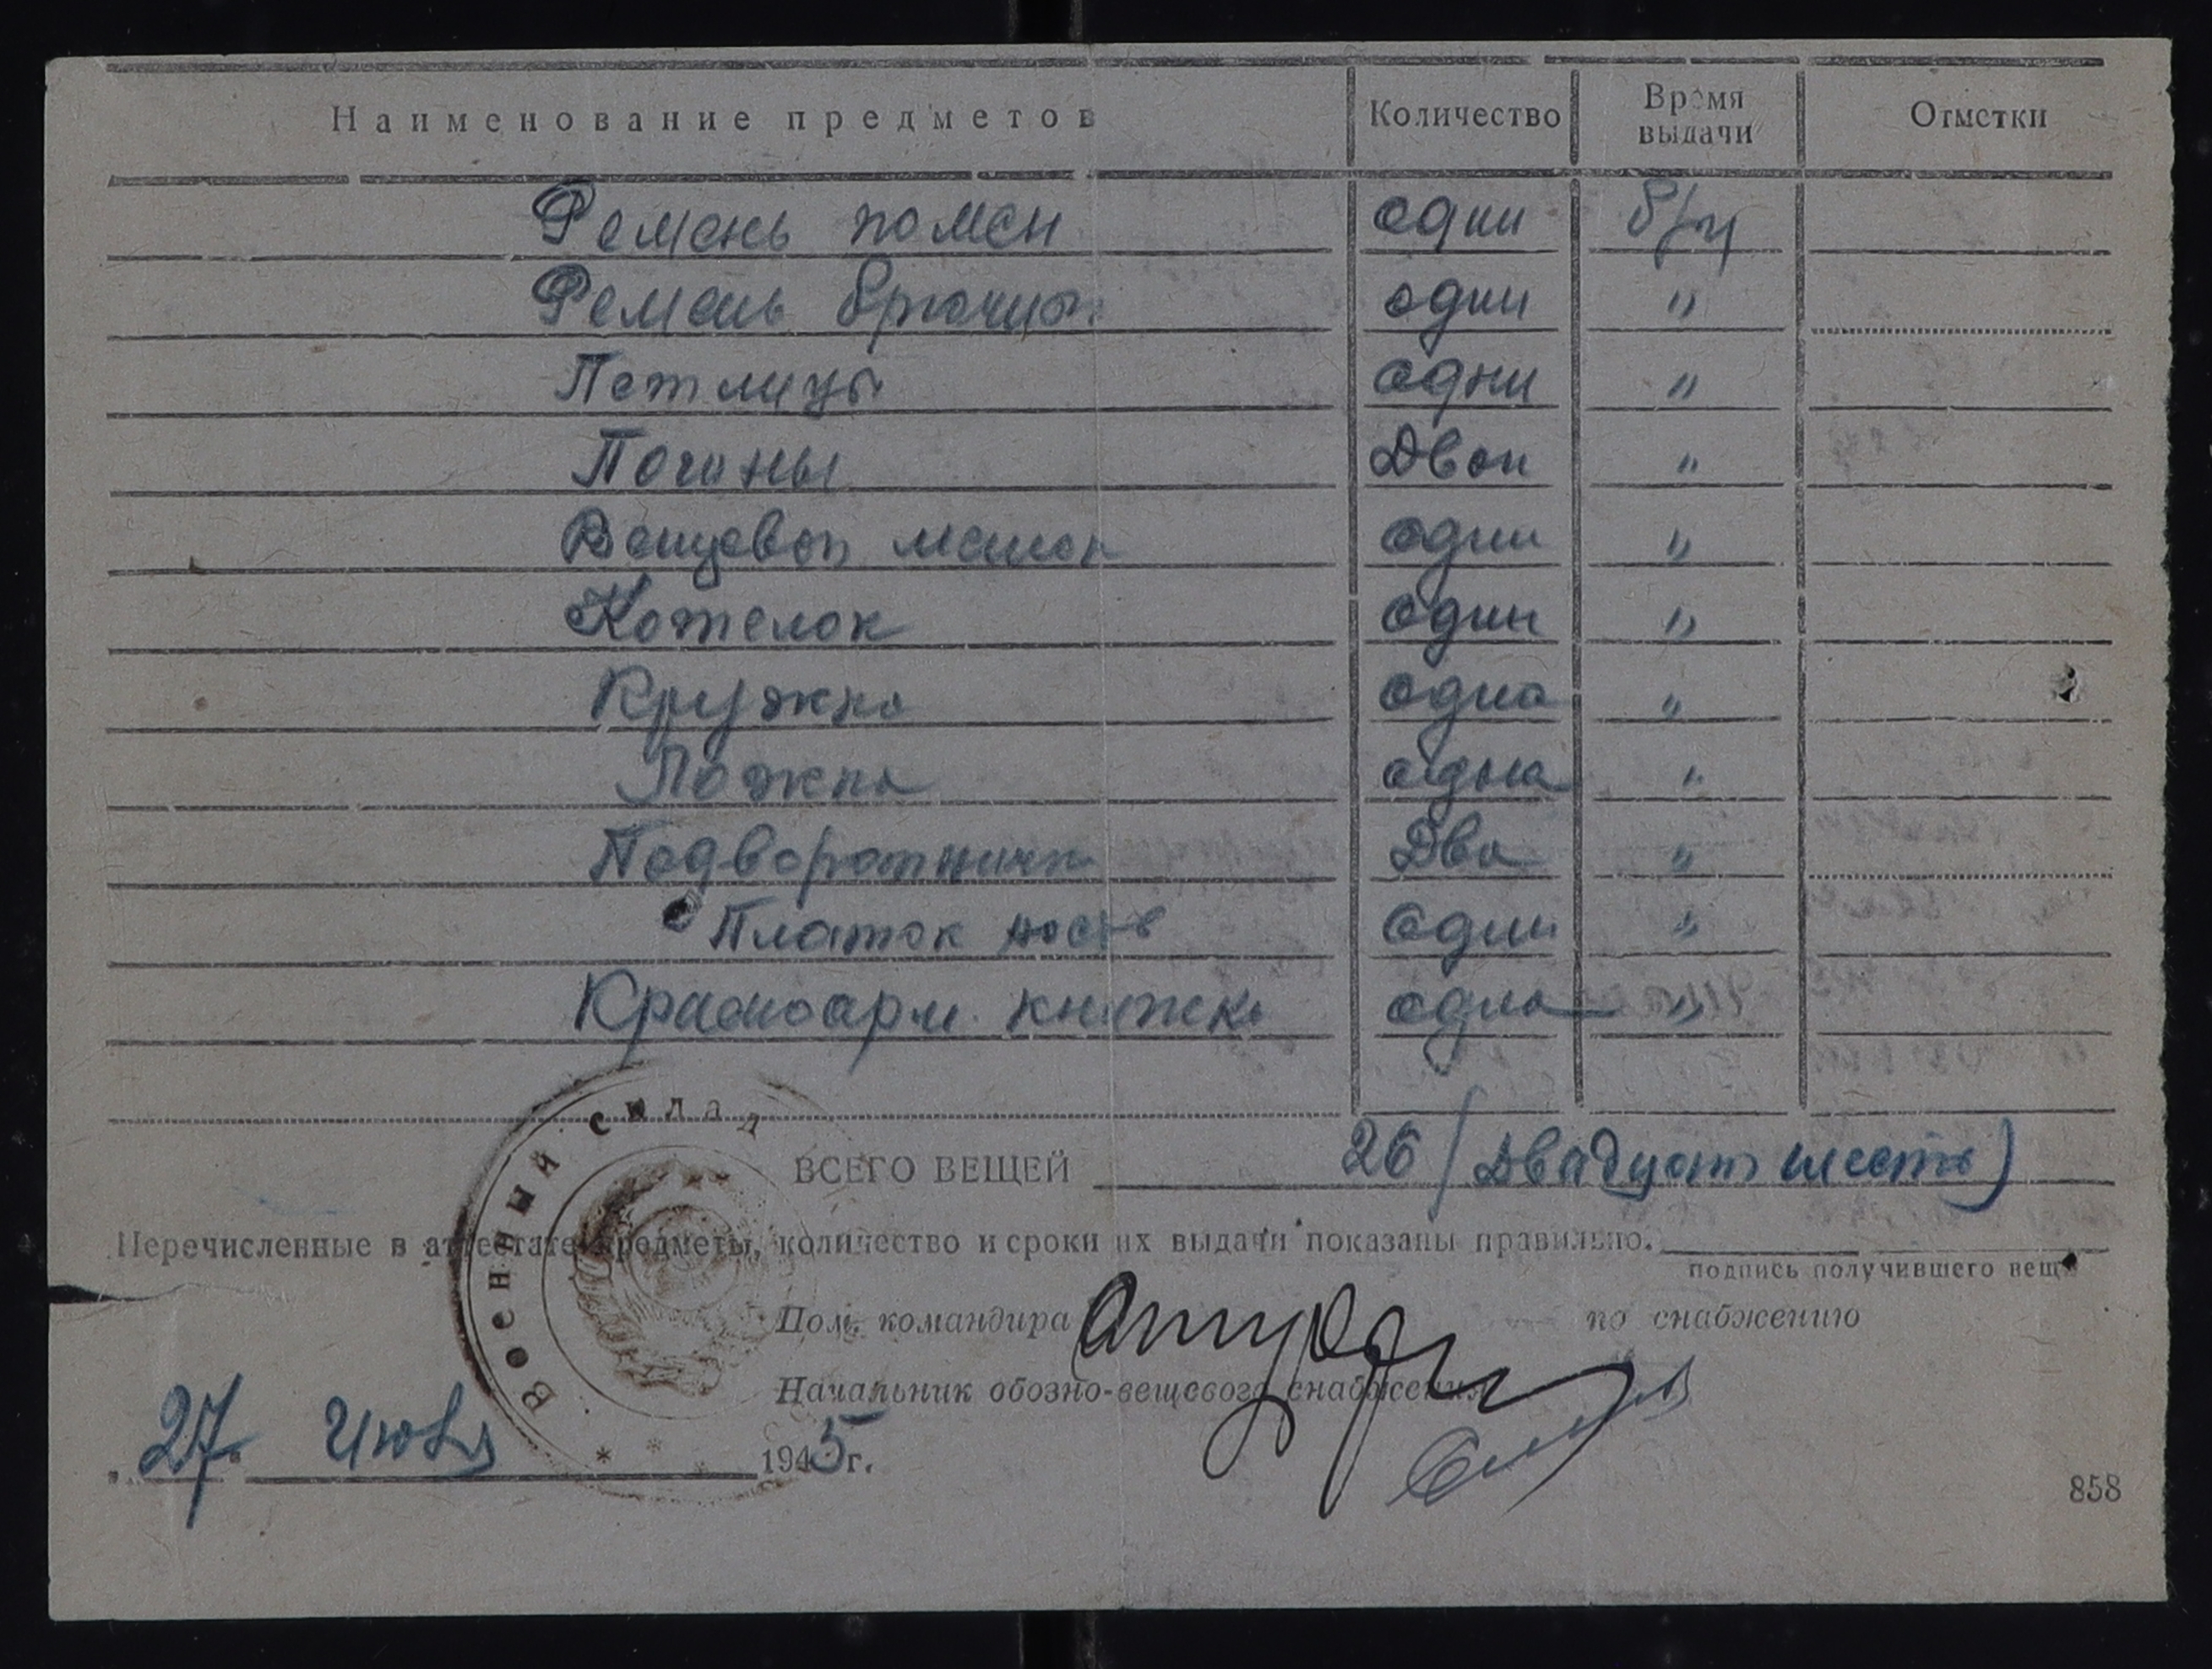 Наименование предметов Количество Время выдачи Отметки
Ремень поясн один б/у
Ремень брючн. один "
Петлицы одни "
Погоны Двои "
Вещевой мешок один "
Котелок один "
Кружка одна "
Ложка одна "
Подворотнички Два "
Платок носов один "
Красноарм. книжка одна "
Военный склад
ВСЕГО ВЕЩЕЙ 26 (Двадцать шесть)
Перечисленные в аттестате предметы, количество и сроки их выдачи показаны правильно.
подпись получившего вещи
Пом. командира по снабжению
Начальник обозно-вещевого снабжения
"27" Июля 1945 г.
858